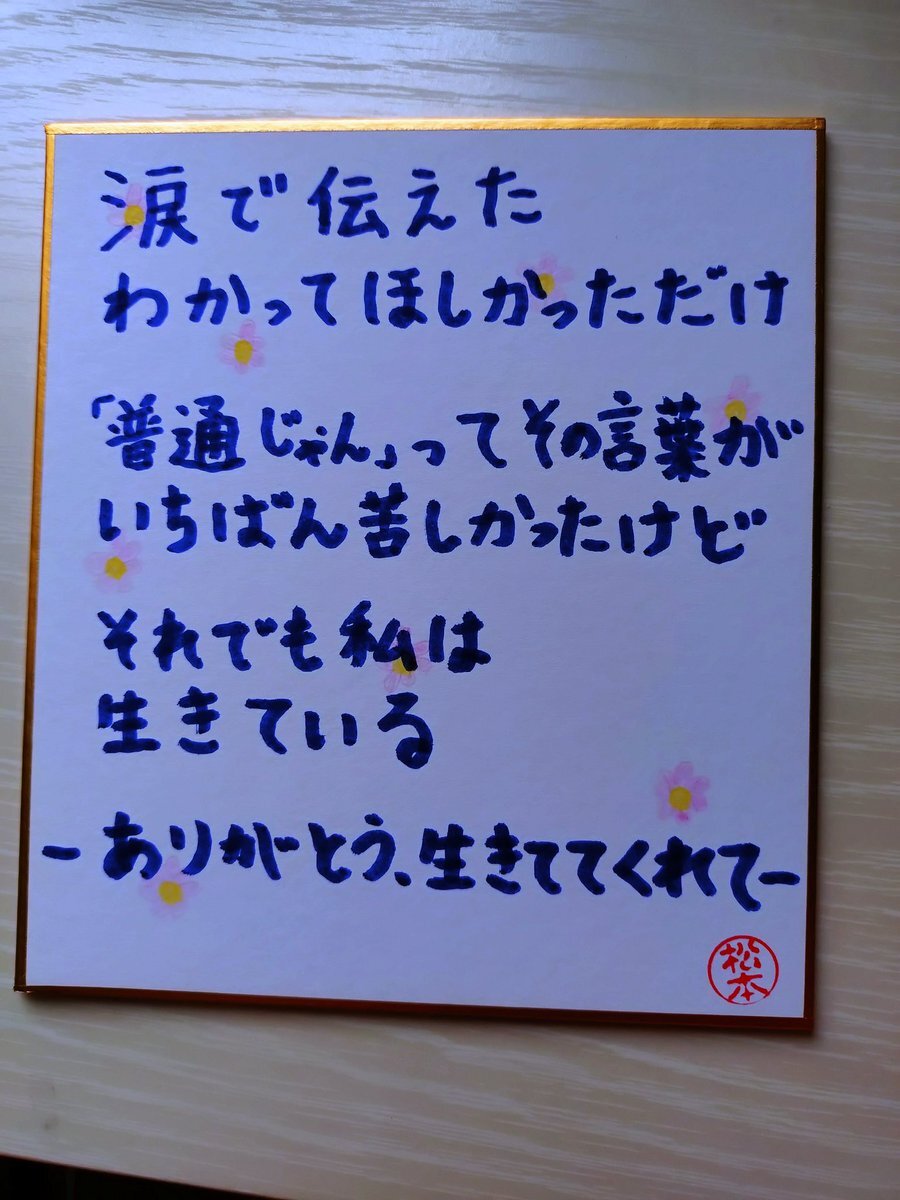 涙で伝えた
わかってほしかっただけ
「普通じゃん」ってその言葉が
いちばん苦しかったけど
それでも私は
生きている
-ありがとう、生きててくれて-
松本